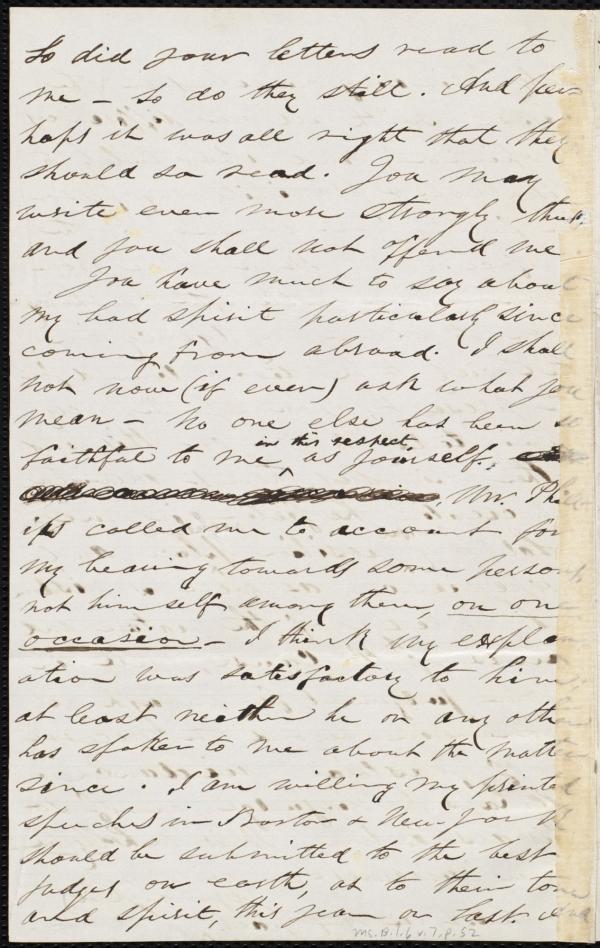 So did your letters read to
me – so do they still. And per-
haps it was all right that they
should so read. You may
write even more strongly thus
and you shall not offend me.
You have much to say about
my bad spirit particularly since
coming from abroad. I shall
not now (if ever) ask what you
mean – No one else has been so
faithful to me in this respect as yourself.
Mr. Phil-
ips called me to account for
my bearing towards some persons,
not himself among them, on one
occasion – I think my explan-
ation was satisfactory to him,
at least neither he or any other
has spoken to me about the matter
since. I am willing my printed
speeches in Boston & New-York
should be submitted to the best
judges on earth, as to their tone
and spirit, this year or last. And
Ms. B.1.6 v.7, p.52